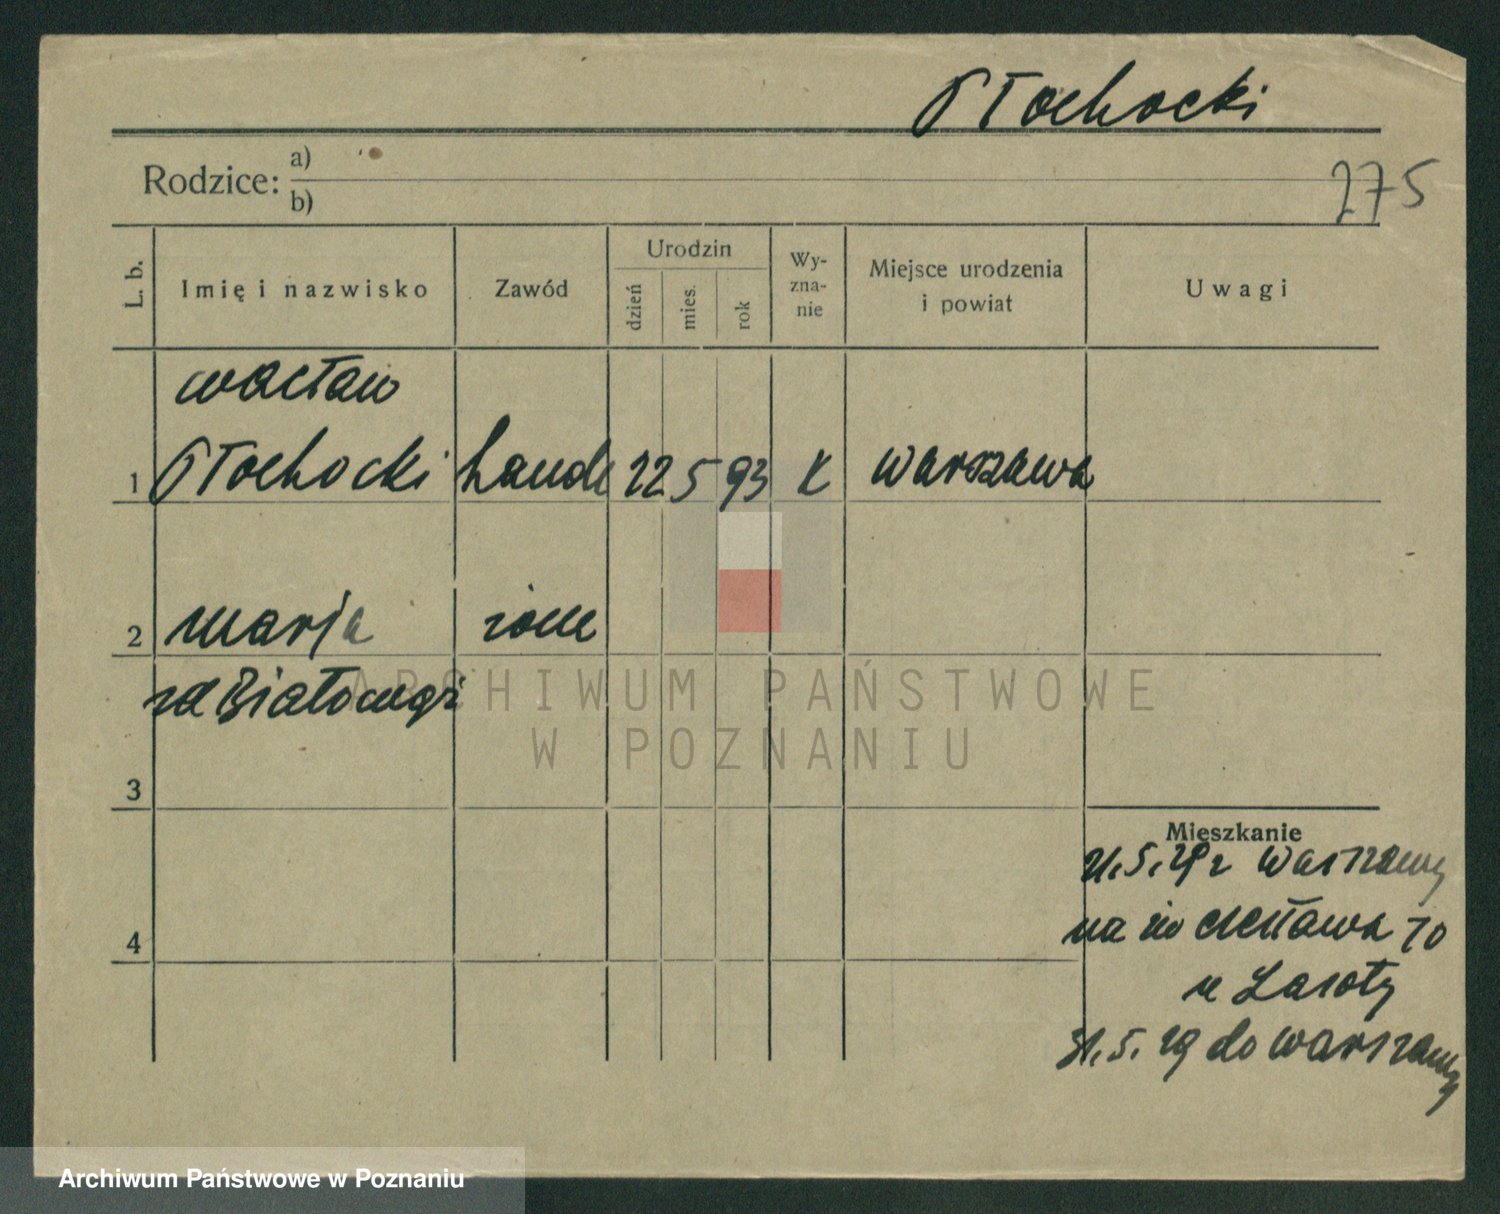 Płochocki
Rodzice: a)
b)
275
L. b.
Imię i nazwisko
Zawód
Urodzin
dzień
mies.
rok
Wy-
zna-
nie
Miejsce urodzenia
i powiat
Uwagi
Wacław
1 Płochocki handl 22 5 93 K Warszawa
2 Maria żona
3
Mieszkanie
z Warszawy
na
4
u Lasoty
31.5.29 do Warszawy
ARCHIWUM PAŃSTWOWE
W POZNANIU
Archiwum Państwowe w Poznaniu